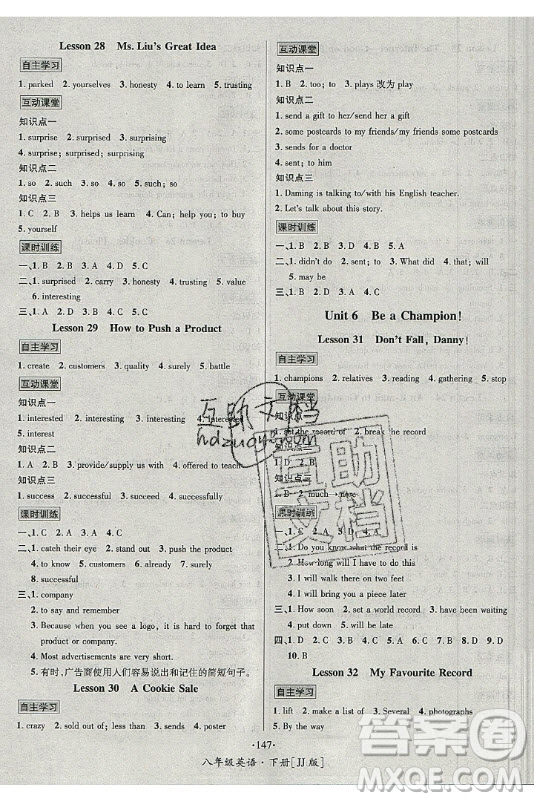 Lesson 28 Ms. Liu's Great Idea
自主学习
1. parked 2. yourselves 3. honesty 4. to learn 5. trusting
互动课堂
知识点一
1. surprise 2. surprised 3. surprising
4. surprise; surprised; surprising
知识点二
1. so 2. such 3. so 4. such; so
知识点三
1. C 2. B 3. helps us learn 4. C
5. yourself
课时训练
一、1. B 2. B 3. A 4. D 5. C
二、1. surprise 2. carry 3. trusting 4. honesty 5. value
6. interesting
Lesson 29 How to Push a Product
自主学习
1. create 2. customers 3. quality 4. surely 5. battle
互动课堂
知识点一
1. interested 2. interesting 3. interested 4. interesting
5. interest
知识点二
1. A 2. D 3. provide/supply us with 4. offered to teach
知识点三
1. success 2. successful 3. succeed
课时训练
一、1. C 2. D 3. D 4. C
二、1. catch their eye 2. stand out 3. push the product
4. makes sense 5. Surely 6. custom 7. quality 8.
9. successful
三、1. company
2. to say and remember
3. Because when you see a logo, it makes you think of a
product or a company.
4. Most advertisements are very short.
5. 有时,广告商使用人们容易说出和记住的简短句子。
Lesson 30 A Cookie Sale
自主学习
1. crazy 2. sold out of; less than 3. sends 4. poster 5. made
互动课堂
知识点一
1. B 2. too 3. to 4. plays 改为 play
知识点二
1. send a gift to her/send her a gift
2. some postcards to my friends/my friends some postcards
3. sends for a doctor
4. sent; to him
知识点三
1. Daming is talking to/with his English teacher.
2. Let's talk about this story.
课时训练
一、1. B 2. B 3. A 4. D 5. C
二、1. sent 2. less than 3. sold out 4. made it 5. will
6. may be
Unit 6 Be a Champion!
Lesson 31 Don't Fall, Danny!
自主学习
1. champions 2. relatives 3. reading 4. gathering 5. stop
互动课堂
知识点一
1. set the record of 2. break the record
知识点二
1. D 2. B
知识点三
1. B 2. much more
课时训练
一、1. D 2. D 3. A 4. C 5. C
二、1. Do you know what the record is
2. How do you do that
3. I will walk there on two feet
4. I can help you
三、1. How soon 2. set a world record 3. have been waiting
4. put down 5. will be going
四、1. D 2. A 3. D 4. C 5. C 6. A 7. C 8. D 9. D
10. B
Lesson 32 My Favourite Record
自主学习
1. lift 2. make a list of 3. Several 4. photographs
5. By the way
·147·
八年级英语·下册[JJ版]
互助文档
hdzuoye.com
互助
文档
作业精灵